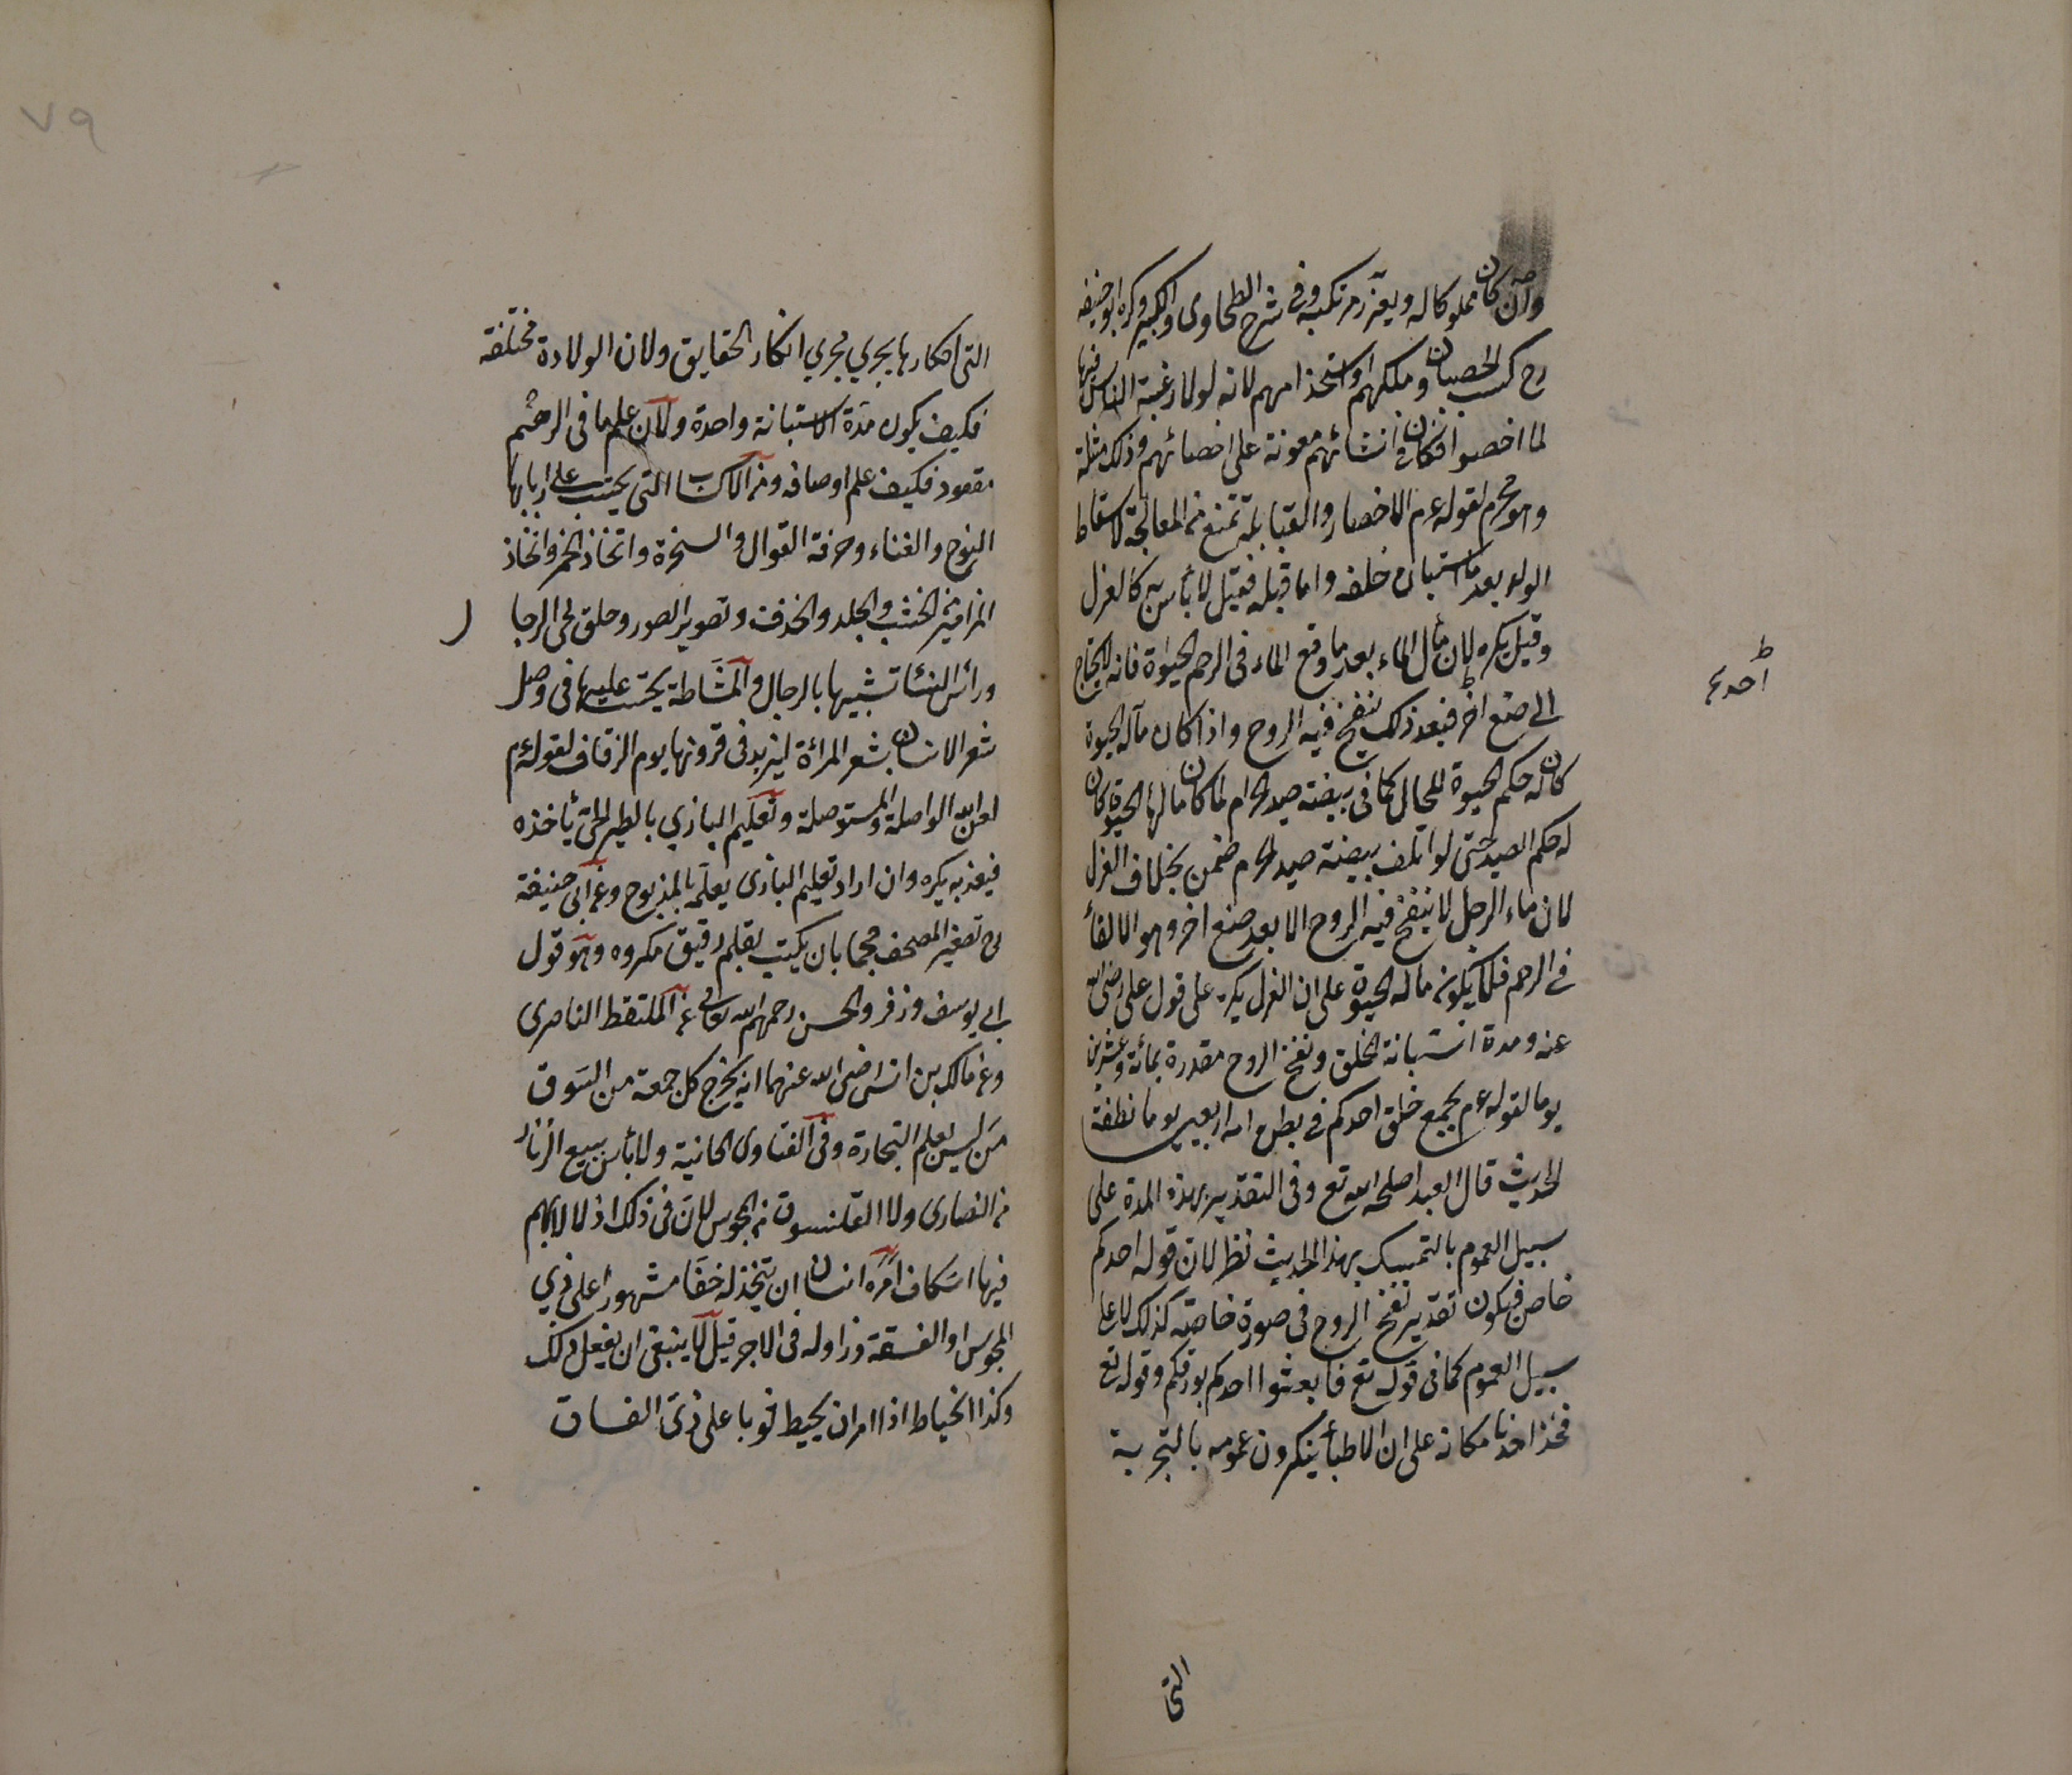 وان كان مملوكا له ويعزر مرتكبه وفى شرح الطحاوى الكبير وكره ابو حنيفه
رح كسب الخصيان وملكهم واستخدامهم لانه لولا رغبة الناس فيها
لما اخصوا فكان فى انشائهم معونة على اخصائهم وذلك مثلة
وهو محرم لقوله عم الاخصار والقبابلة تمنع من المعالجة لاسقاط
الولد بعد ما استبان خلقه واما قبله فقيل لا بأس به كالعزل
وقيل يكره لان مآل الماء بعد ما وقع الماء فى الرحم الحيوة فانه لا يحتاج
الى صنع اخر فبعد ذلك ينفخ فيه الروح واذا كان مآله الحيوة
كان له حكم الحيوة للحال كما فى بيضة صيد الحرام لما كان مآلها الحيوة كان
له حكم الصيد حتى لو اتلف بيضة صيد الحرام ضمن بخلاف العزل
لان ماء الرجل لا ينفخ فيه الروح الا بعد صنع اخر وهو الالقاء
فى الرحم فلا يكون مآله الحيوة على ان العزل يكره على قول على رضى الله
عنه ومدة استبانة الخلق ونفخ الروح مقدرة بمائة وعشرين
يوما لقوله عم يجمع خلق احدكم فى بطن امه اربعين يوما نطفة
الحديث قال العبد اصلحه الله تع وفى التقدير بهذه المدة على
سبيل العموم بالتمسك بهذا الحديث نظر لان قوله احدكم
خاص فيكون تقدير نفخ الروح فى صورة خاصة كذلك لا على
سبيل العموم كما فى قوله تع فابعثوا احدكم بورقكم وقوله تع
فخذ احدنا مكانه على ان الاطباء ينكرون عمومه بالتجربة
التى
احدها
٧٩
التى انكارها يجرى مجرى انكار الحقايق ولان الولادة مختلفة
فكيف يكون مدة الاستبانة واحدة ولان علم ما فى الرحم
مفقود فكيف علم اوصافه ومن الاكساب التى يحتسب على اربابها
النوح والغناء وحرفة القوال والسخرة واتخاذ الخمر واتخاذ
المزامير من الخشب والجلد والخذف وتصوير الصور وحلق لحى الرجال
ورأس النساء تشبيها بالرجال والمشاطة يحتسب عليها فى وصل
شعر الانسان بشعر المرأة ليزيد فى قرونها يوم الزفاف لقوله عم
لعن الله الواصلة والمستوصلة وتعليم البازى بالطير الحى يأخذه
فيعذبه يكره وان اراد تعليم البازى يعلمه بالمذبوح وعن ابى حنيفة
رح تصغير المصحف حجما بان يكتب بقلم دقيق مكروه وهو قول
ابى يوسف وزفر والحسن رحمهم الله تعالى من الملتقط الناصرى
وعن مالك بن انس رضى الله عنهما انه يخرج كل جمعة من السوق
من ليس يعلم التجارة وفى الفتاوى الخانية ولا بأس ببيع الزنار
من النصارى ولا القلنسوة من المجوس لان فى ذلك اذلالا بهم
فيها اسكاف امره انسان ان يتخذ له خفا مشهورا على زى
المجوس او الفسقة وزاد له فى الاجر قيل لا ينبغى ان يفعل ذلك
وكذا الخياط اذا امر ان يخيط ثوبا على زى الفساق